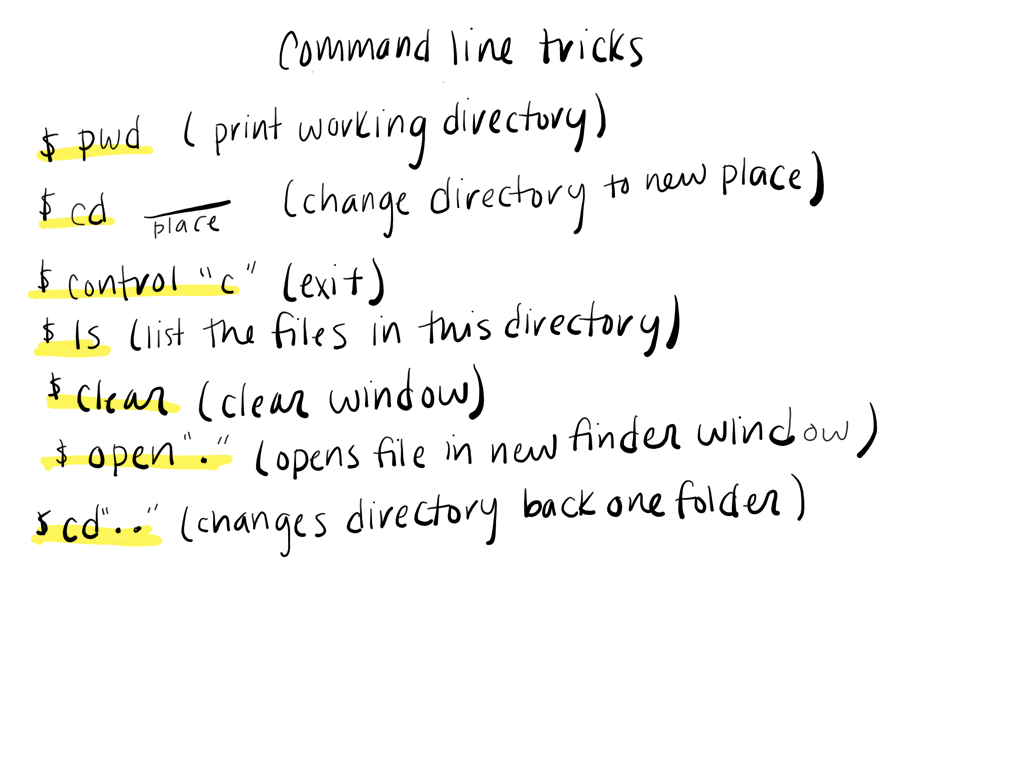 Command line tricks
$ pwd (print working directory)
$ cd ___ (change directory to new place)
place
$ control "c" (exit)
$ ls (list the files in this directory)
$ clear (clear window)
$ open "." (opens file in new finder window)
$ cd ".." (changes directory back one folder)